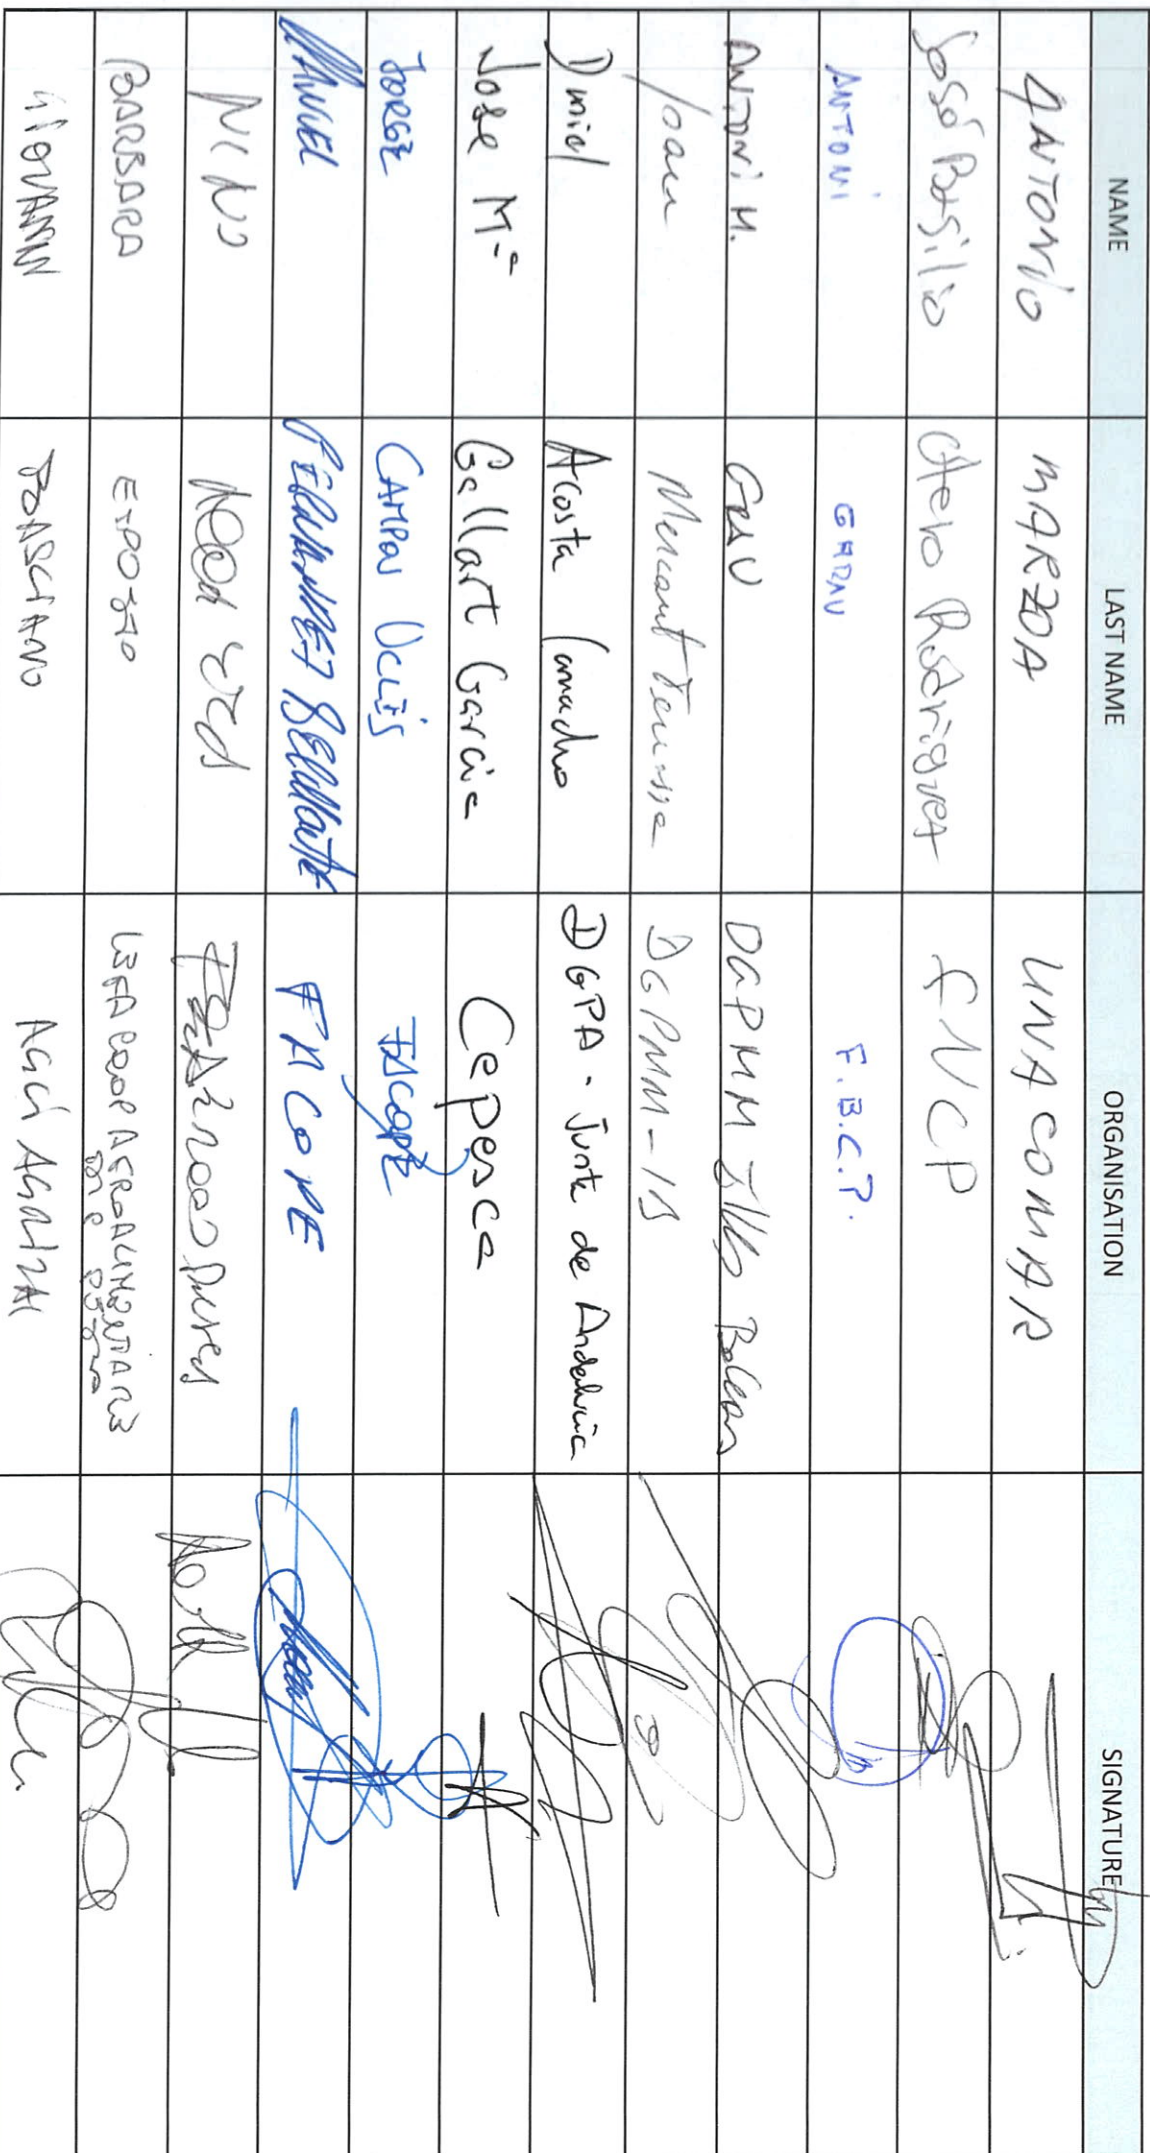 NAME LAST NAME ORGANISATION SIGNATURE
ANTONIO MARZOA UNACOMAR
José Basilio Otero Rodríguez FNCP
ANTONI GARAU F.B.C.P.
ANTONI M. GRAU DGPMM Illes Balears
Joan Mercant Terrassa DGPMM-IB
Daniel Acosta Camacho DGPA - Junta de Andalucía
Jose Mª Gallart Garcia Cepesca
JORGE CAMPOS UCLÉS FACOPE
MANUEL FERNANDEZ BELMONTE FACOPE
NINO
BARBARA ESPOSITO LEGACOOP AGROALIMENTARE
GIOVANNI BASCIANO AGCI AGRITAL